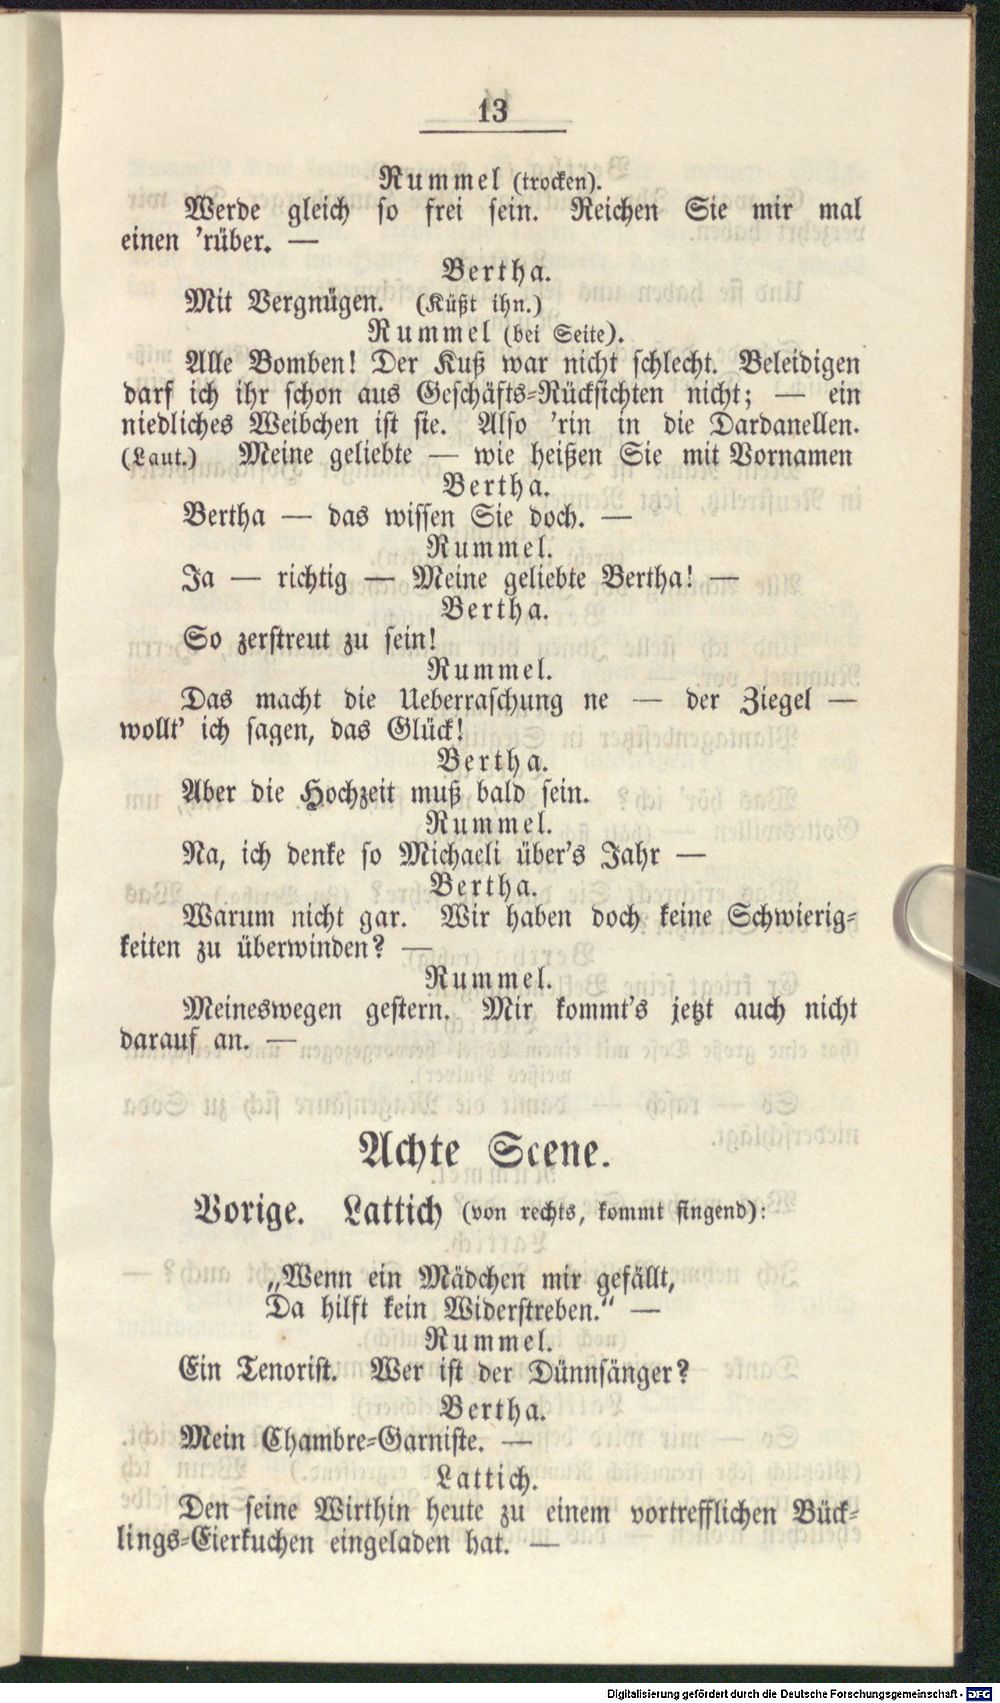 13
Rummel (trocken).
Werde gleich so frei sein. Reichen Sie mir mal
einen 'rüber. —
Bertha.
Mit Vergnügen. (Küßt ihn.)
Rummel (bei Seite).
Alle Bomben! Der Kuß war nicht schlecht. Beleidigen
darf ich ihr schon aus Geschäfts-Rücksichten nicht; — ein
niedliches Weibchen ist sie. Also 'rin in die Dardanellen.
(Laut.) Meine geliebte — wie heißen Sie mit Vornamen
Bertha.
Bertha — das wissen Sie doch. —
Rummel.
Ja — richtig — Meine geliebte Bertha! —
Bertha.
So zerstreut zu sein!
Rummel.
Das macht die Ueberraschung ne — der Ziegel —
wollt' ich sagen, das Glück!
Bertha.
Aber die Hochzeit muß bald sein.
Rummel.
Na, ich denke so Michaeli über's Jahr —
Bertha.
Warum nicht gar. Wir haben doch keine Schwierig-
keiten zu überwinden? —
Rummel.
Meineswegen gestern. Mir kommt's jetzt auch nicht
darauf an. —
Achte Scene.
Vorige. Lattich (von rechts, kommt singend):
„Wenn ein Mädchen mir gefällt,
Da hilft kein Widerstreben.“ —
Rummel.
Ein Tenorist. Wer ist der Dünnsänger?
Bertha.
Mein Chambre-Garniste. —
Lattich.
Den seine Wirthin heute zu einem vortrefflichen Bück-
lings-Eierkuchen eingeladen hat. —
Digitalisierung gefördert durch die Deutsche Forschungsgemeinschaft - DFG